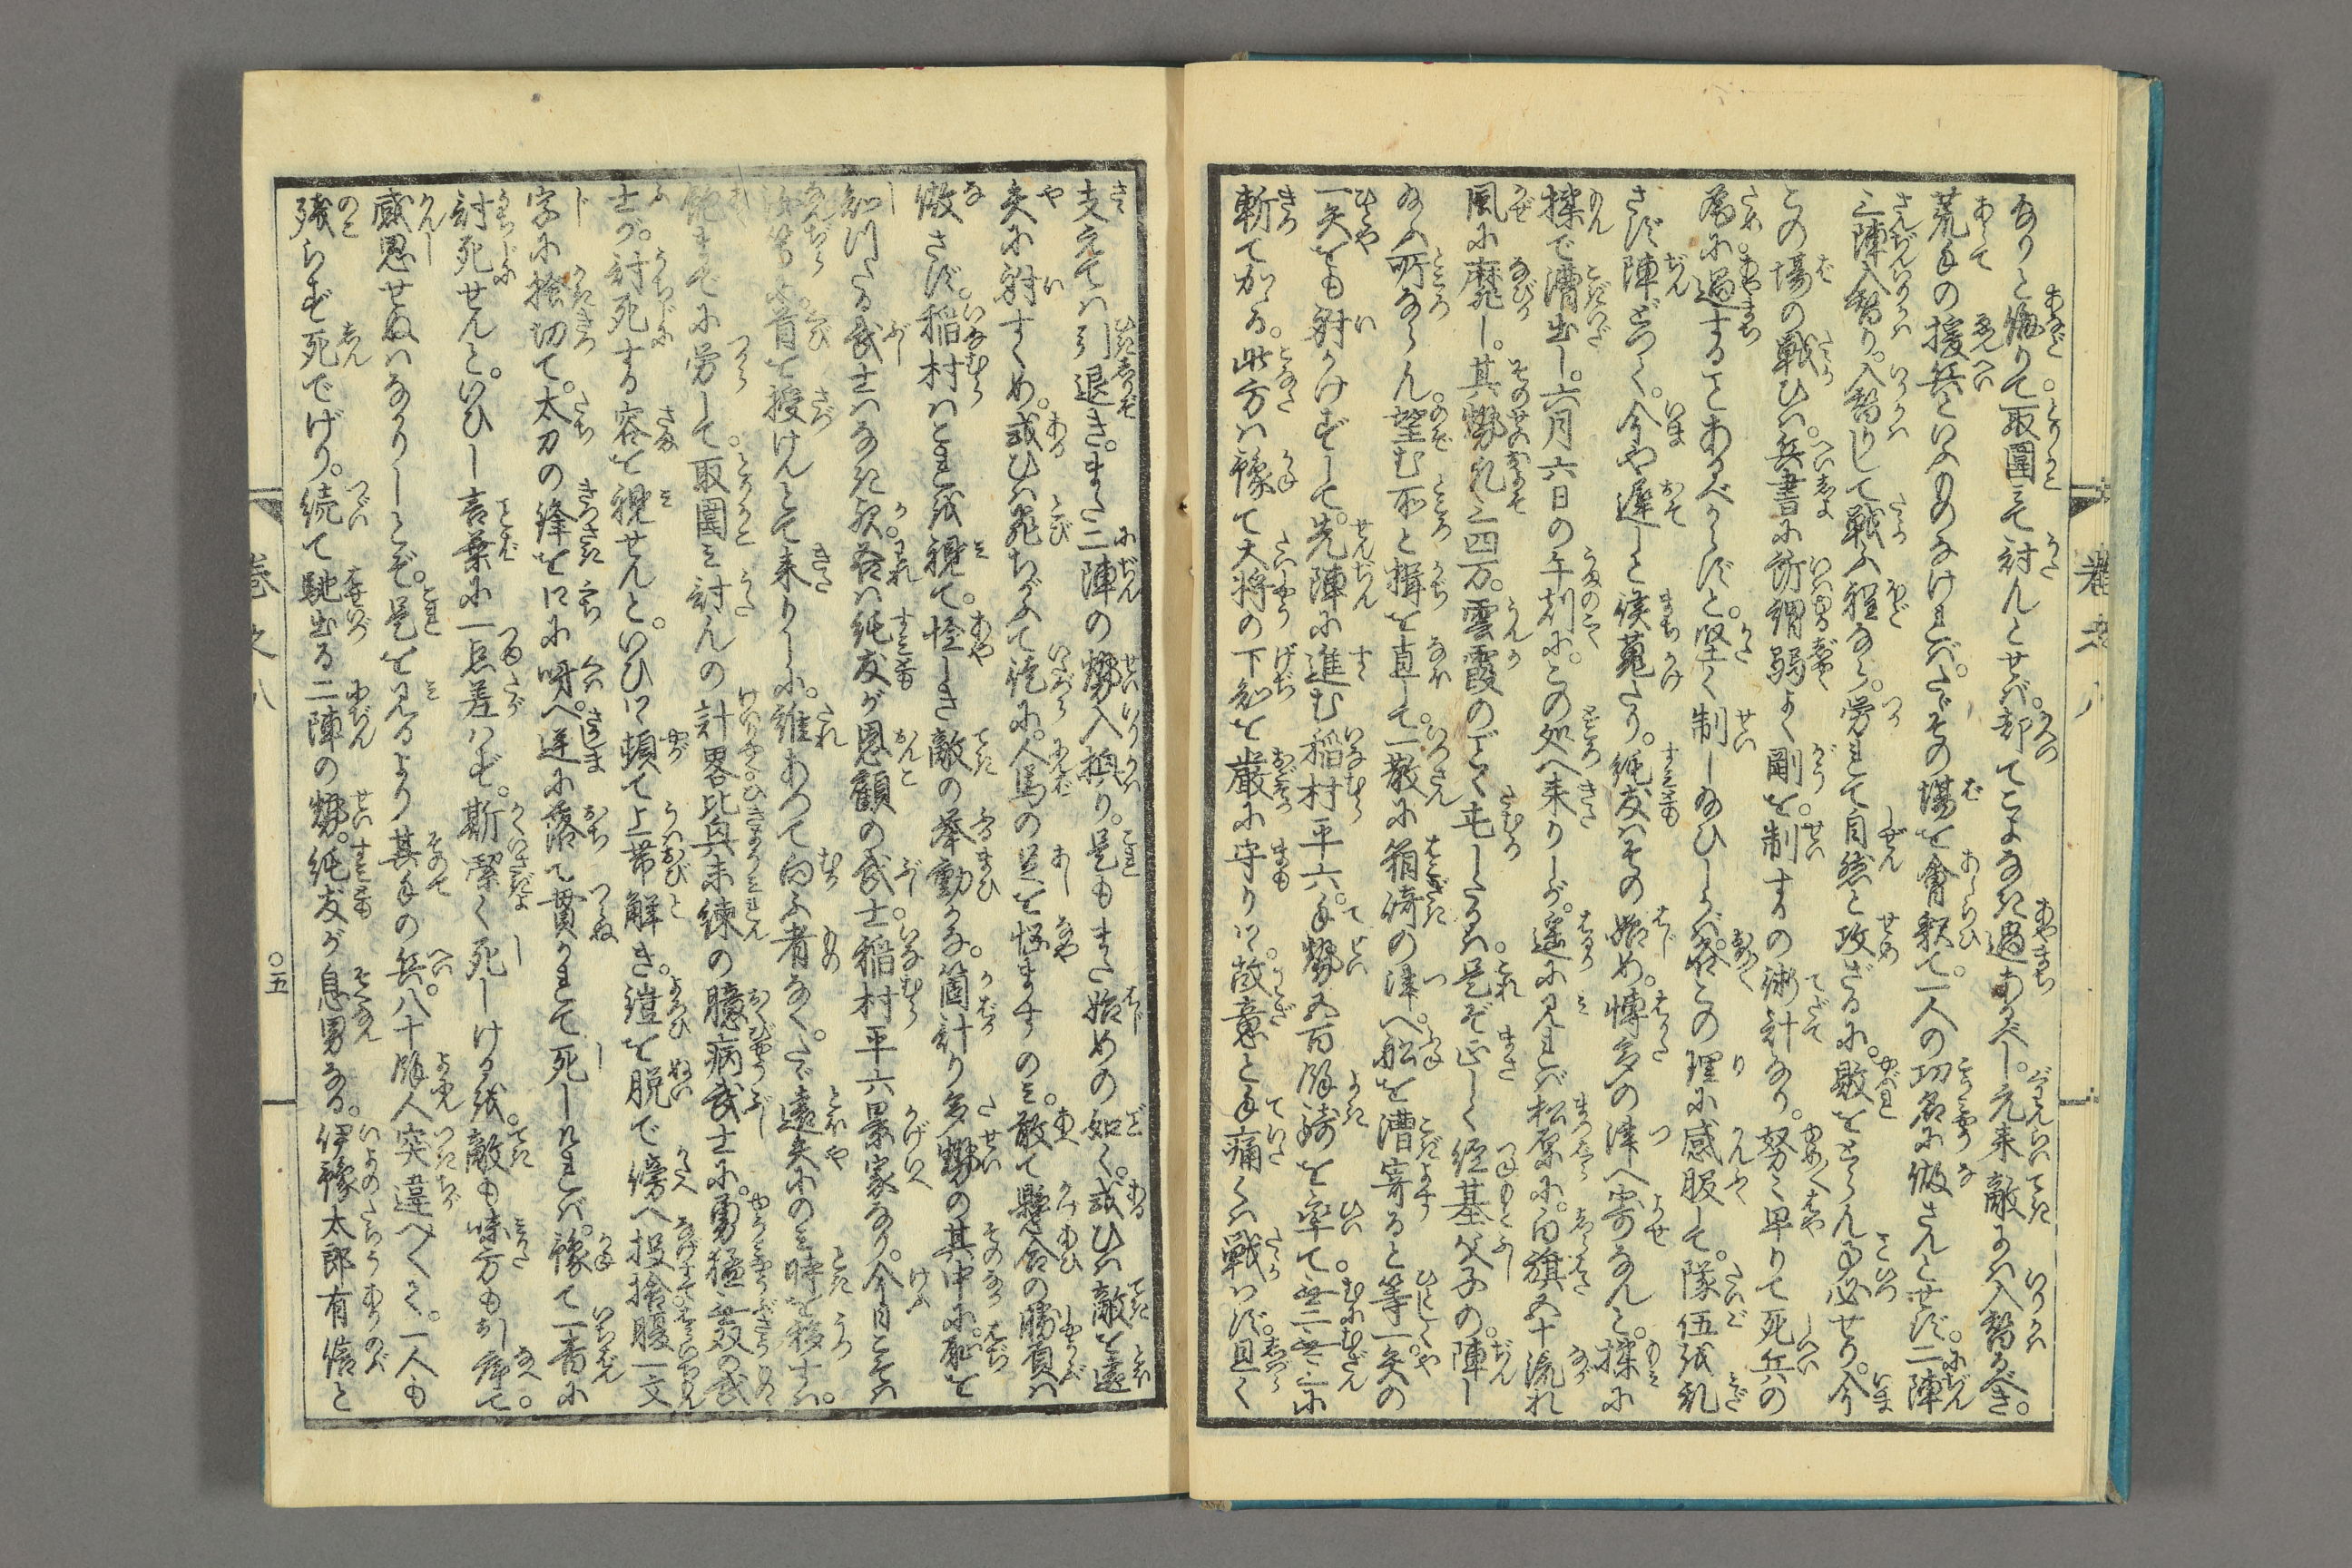 なりと侮りて取圍みて討んとせば却てこよなき過あるべし元来敵には入替るべき。
荒手の援兵といふものなければたゞその場を會釈て一人の功名に做さんとせず。二陣
三陣入替り。入替りして戦ふ程なら。労れて自然と攻ざるに。敗をとらん事必せり。今
この場の戦ひハ。兵書に所謂弱よく剛を。制するの術計なり。努〻早りて死兵の
為に過することあるべからずと。堅く制し給ひしかば各この理に感服して。隊伍を乱
さず陣どつく。今や遅しと俟蒐たり。純友はその始め。博多の津へ寄なんと。揉に
揉で漕出し。六月六日の午刻に。この処へ来りしが。遥に見れば松原に。白旗五十流れ
風に靡し。其勢凡三四万。雲霞のごとく屯したるハ。是ぞ正しく経基父子の。陣し
給ふ所ならん。望む所と揖を直して。一散に箱﨑の津へ。船を漕寄ると等く。一矢の
一矢をも射かけずして。先陣に進む稲村平六。手勢五百餘騎を率て。無二無三に
斬てかゝる。此方ハ豫て大将の下知を嚴に守りつゝ。故意と手痛くハ戦はず。且く
支えてハ引退き。また二陣の勢入換り。是もまた始めの如く。或ひハ敵を遠
矢に射すくめ。或ひハ飛ちがふて徒に。人馬の足を悩ますのミ。敢て懸合の勝負ハ
做さず。稲村ハこれを視て。怪しき敵の挙動かな。箇計り多勢の其中に。恥を
知つたる武士ハなきか。吾ハ純友が恩顧の武士。稲村平六景家なり。今日こそハ
汝等に。首を授けんとて来りしに。誰あつて向ふ者なく。たゞ遠矢にのミ時を移すハ。
飽まで小労して。取圍ミ討んの計畧。比興未練の臆病武士に。勇猛無双の武
士が。討死する容を視せんと。いひつゝ頓て上帯解き。鎧を脱で傍へ投捨。腹一文
字に掻切て。太刀の鋒を口に呀へ。逆に落て貫かれて死したりければ。豫て一番に
討死せんと。いひし言葉に一点差ハず。斯潔く死しけるを。敵も味方もおし並て。
感思せぬハなかりしとぞ。是を見るより其手の兵。八十餘人突違へ〳〵て。一人も
残らず死でげり。続て馳出る二陣の勢。純友が息男なる。伊豫太郎有信と
巻之八
〇五